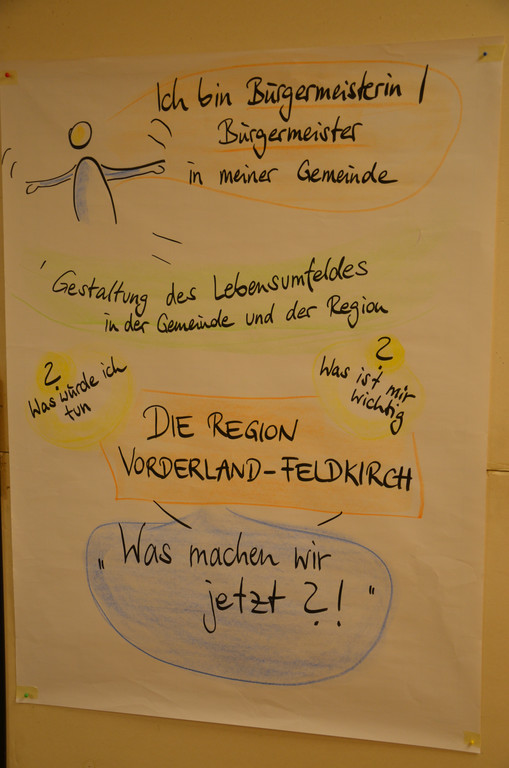 Ich bin Bürgermeisterin /
Bürgermeister
in meiner Gemeinde
Gestaltung des Lebensumfeldes
in der Gemeinde und der Region
?
Was würde ich
tun
?
Was ist mir
wichtig
DIE REGION
VORDERLAND-FELDKIRCH
"Was machen wir
jetzt ?!"